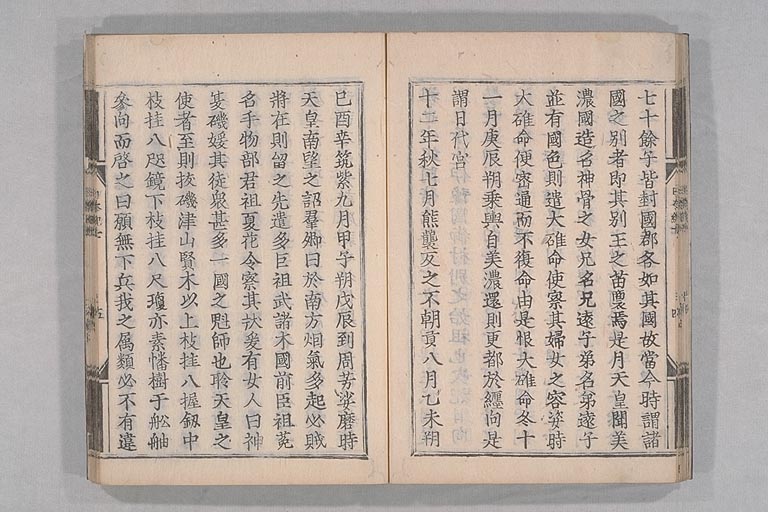 七十餘子皆封國郡各如其國故當今時謂諸
國之別者即其別王之苗裔焉是月天皇聞美
濃國造名神骨之女兄名兄遠子弟名弟遠子
並有國色則遣大碓命使察其婦女之容姿時
大碓命便密通而不復命由是恨大碓命冬十
一月庚辰朔乗輿自美濃還則更都於纒向是
謂日代宮
十二年秋七月熊襲反之不朝貢八月乙未朔
己酉幸筑紫九月甲子朔戊辰到周芳娑麼時
天皇南望之詔羣卿曰於南方烟氣多起必賊
將在則留之先遣多臣祖武諸木國前臣祖菟
名手物部君祖夏花令察其狀爰有女人曰神
夏磯媛其徒衆甚多一國之魁師也聆天皇之
使者至則抜磯津山賢木以上枝挂八握劔中
枝挂八咫鏡下枝挂八尺瓊亦素幡樹于舩舳
參向而啓之曰願無下兵我之属類必不有違